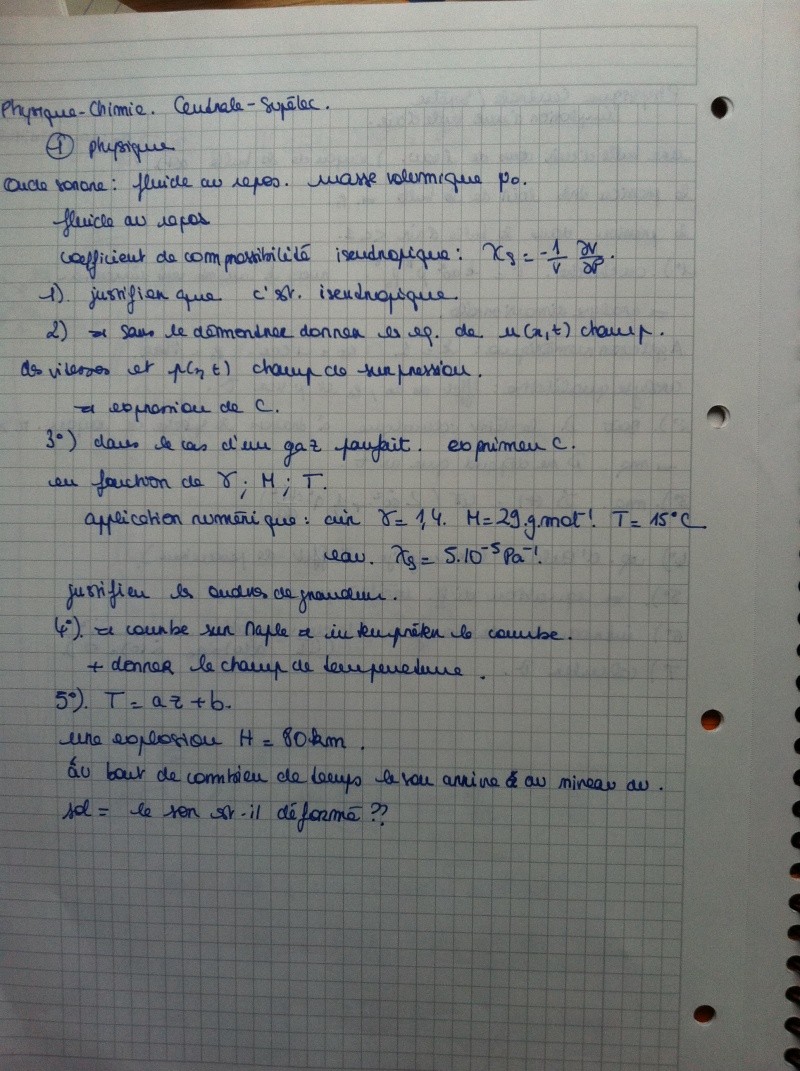 Physique-Chimie. Centrale-Supélec.
① physique
Onde sonore : fluide au repos. masse volumique ρ0.
fluide au repos
coefficient de compressibilité isentropique : χs = -1/V ∂V/∂P.
1). justifier que c'est. isentropique.
2) → sans le démontrer donner les eq. de u(x,t) champ.
des vitesses et p(x,t) champ de surpression.
→ expression de C.
3°) dans le cas d'un gaz parfait. exprimer C.
en fonction de γ ; M ; T.
application numérique : air γ = 1,4. M = 29.g.mol-1. T = 15°C
eau. χs = 5.10-5 Pa-1.
justifier les ordres de grandeur.
4°). → courbe sur Maple → interpréter la courbe.
+ donner le champ de température.
5°). T = az + b.
une explosion H = 80km.
Au bout de combien de temps le son arrive au niveau du.
sol = le son est-il déformé ??